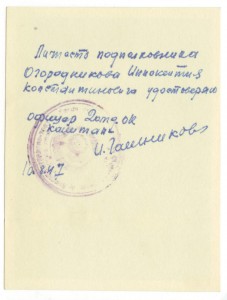 Личность подполковника
Огородникова Иннокентия
Константиновича удостоверяю
офицер 2 отд. ОК
капитан
И. Галишников